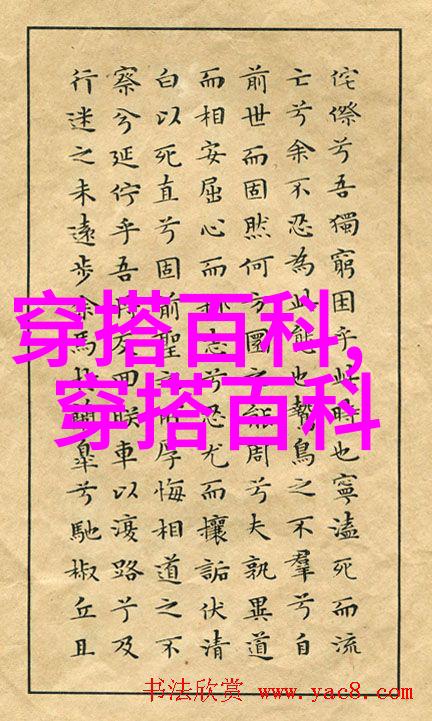 侘傺兮吾獨窮困乎此時也寧溘死而流
亡兮余不忍為此態也鷙鳥之不羣兮自
前世而固然何方圜之能周兮夫孰異道
而相安屈心而抑志兮忍尤而攘詬伏清
白以死直兮固前聖之所厚悔相道之不
察兮延佇乎吾將反回朕車以復路兮及
行迷之未遠步余馬於蘭皋兮馳椒丘且
穿搭百科,
穿搭百科
书法欣赏 www.yac8.com